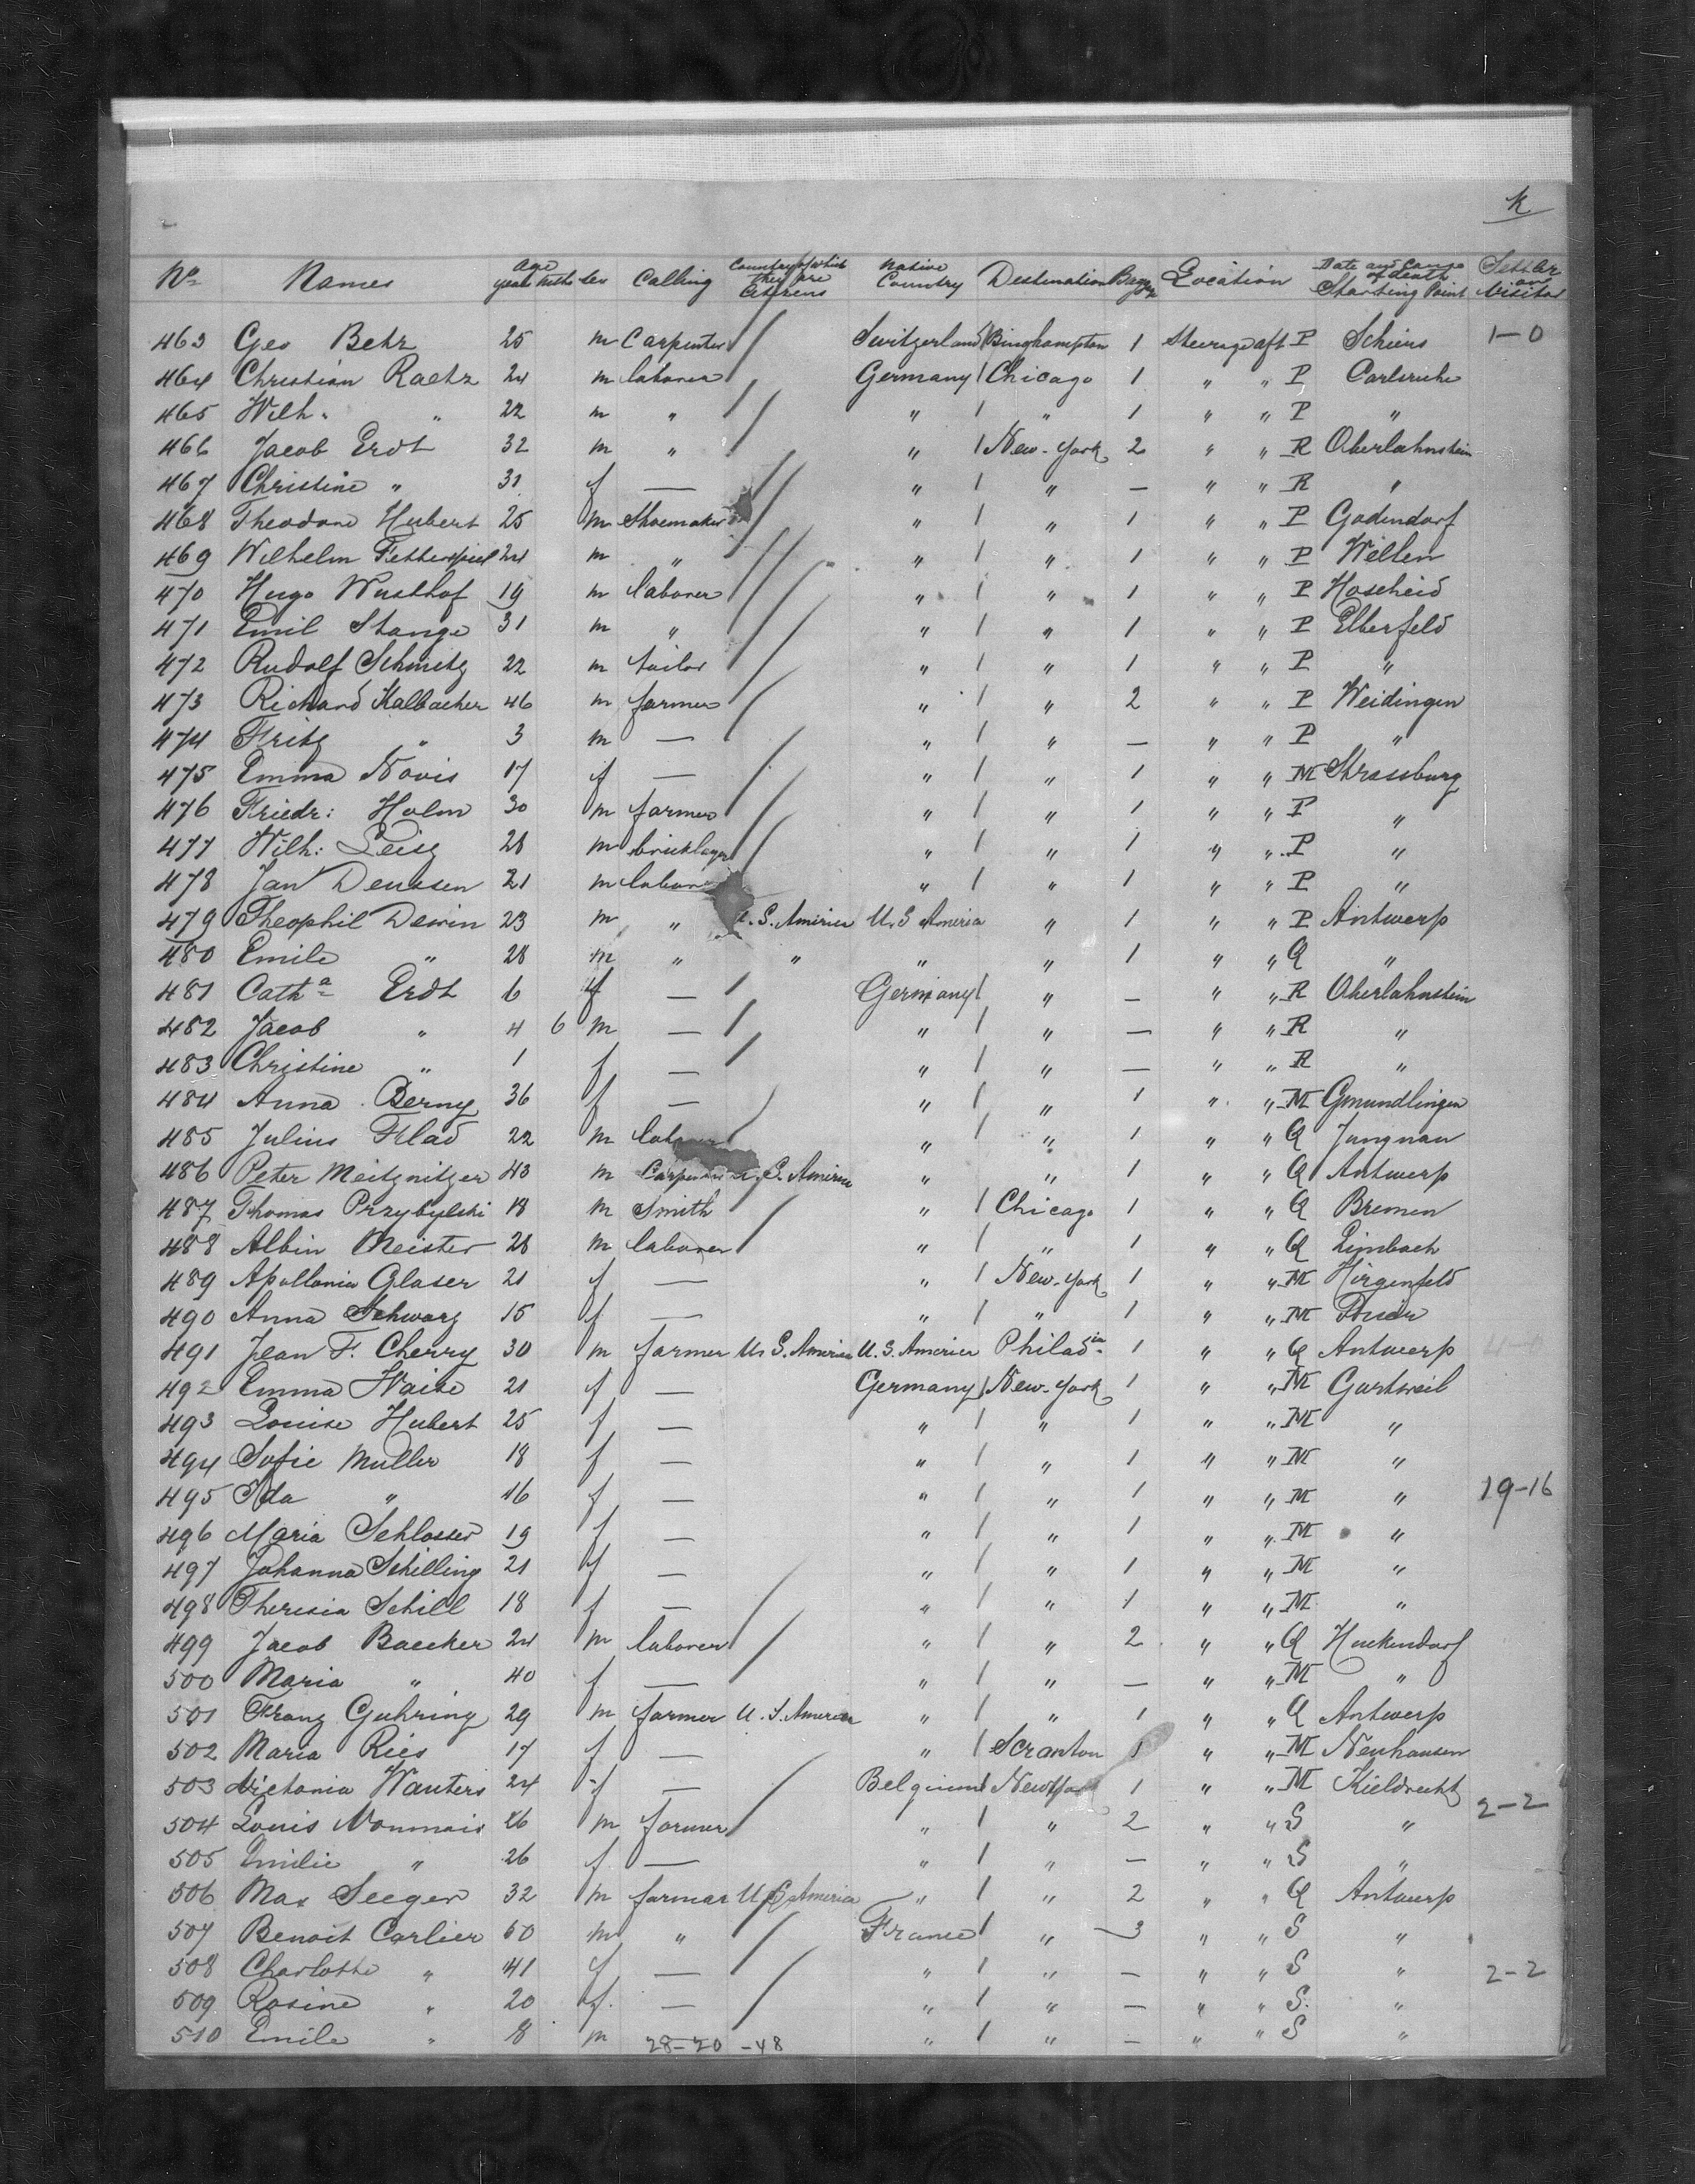 k
No Names Age years Mths Sex Calling Country of which they are Citizens Native Country Destination Location Date and Cause of death Starting Point Settler or Visitor
463 Geo Behr 25 m Carpenter Switzerland Binghampton 1 Steerage aft P Schiers 1-0
464 Christian Raetz 24 m laborer Germany Chicago 1 " " P Carlsruhe
465 Wilh. " 22 m " " " 1 " " P "
466 Jacob Erdt 32 m " " New-York 2 " " R Oberlahnstein
467 Christine " 31 f — " " — " " R "
468 Theodore Hubert 25 m Shoemaker " " 1 " " P Godendorf
469 Wilhelm 24 m " " " 1 " " P Wellen
470 Hugo Wusthof 19 m laborer " " 1 " " P Hoscheid
471 Emil Stange 31 m " " " 1 " " P Elberfeld
472 Rudolf Schmitz 22 m tailor " " 1 " " P "
473 Richard Kalbacher 46 m farmer " " 2 " " P Weidingen
474 Fritz " 3 m — " " — " " P "
475 Emma Novis 17 f — " " 1 " " M Strassburg
476 Friedr: Holm 30 m farmer " " 1 " " P "
477 Wilh: Leisz 28 m bricklayer " " 1 " " P "
478 Jan Denssen 21 m laborer " " 1 " " P "
479 Theophil Dewin 23 m " U.S. America U.S America " 1 " " P Antwerp
480 Emile " 28 m " " " " 1 " " Q "
481 Catha Erdt 6 f — Germany " — " " R Oberlahnstein
482 Jacob " 4 6 m — " " — " " R "
483 Christine " 1 f — " " — " " R "
484 Anna Berny 36 f — " " 1 " " M Gmundlingen
485 Julius Flad 22 m laborer " " 1 " " Q Jungnau
486 Peter Meitznitzer 43 m Carpenter U.S. America " " 1 " " Q Antwerp
487 Thomas Przybylski 18 m Smith " Chicago 1 " " Q Bremen
488 Albin Meister 28 m laborer " " 1 " " Q Limbach
489 Apollonia Glaser 21 f — " New-York 1 " " M Hirgenfeld
490 Anna Schwarz 15 f — " " 1 " " M
491 Jean F. Cherry 30 m farmer U.S. America U.S. America Philadia 1 " " Q Antwerp
492 Emma Waise 21 f — Germany New-York 1 " " M Gurtweil
493 Louise Hubert 25 f — " " 1 " " M "
494 Sofie Muller 18 f — " " 1 " " M "
495 Ida " 16 f — " " 1 " " M " 19-16
496 Maria Schlosser 19 f — " " 1 " " M "
497 Johanna Schilling 21 f — " " 1 " " M "
498 Theresia Schill 18 f — " " 1 " " M "
499 Jacob Baecker 24 m laborer " " 2 " " Q Huckendorf
500 Maria " 40 f — " " — " " M "
501 Franz Guhring 29 m farmer U.S. America " " 1 " " Q Antwerp
502 Maria Ries 17 f — " Scranton 1 " " M Neuhausen
503 Victonia Wauters 24 f — Belgium New York 1 " " M Kieldrecht
2-2
504 Louis Nonmais 26 m farmer " " 2 " " S "
505 Emilie " 26 f — " " — " " S "
506 Max Seeger 32 m farmer U.S. America " " 2 " " Q Antwerp
507 Benoit Carlier 50 m " France " 3 " " S "
508 Charlotte " 41 f — " " — " " S " 2-2
509 Rosine " 20 f. — " " — " " S. "
510 Emile " 8 m — " " — " " S "
28-20-48